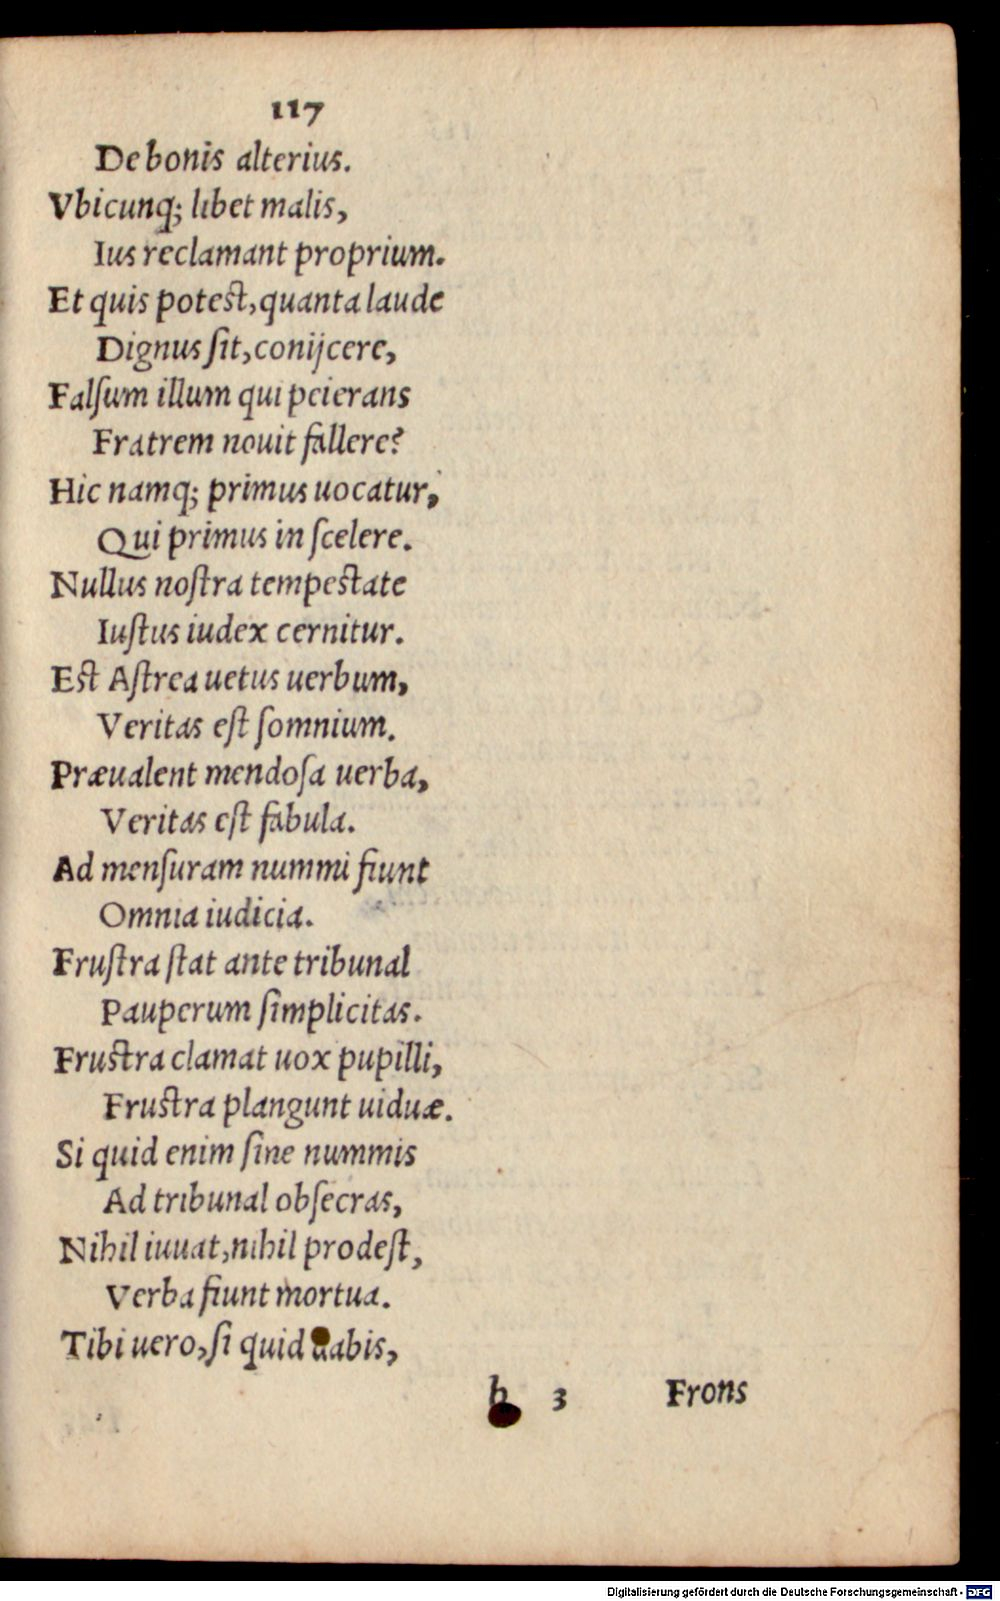 117
De bonis alterius.
Vbicunq; libet malis,
Ius reclamant proprium.
Et quis potest, quanta laude
Dignus ſit, conijcere,
Falſum illum qui peierans
Fratrem nouit fallere?
Hic namq; primus uocatur,
Qui primus in ſcelere.
Nullus noſtra tempestate
Iuſtus iudex cernitur.
Est Aſtrea uetus uerbum,
Veritas eſt ſomnium.
Præualent mendoſa uerba,
Veritas eſt fabula.
Ad menſuram nummi fiunt
Omnia iudicia.
Fruſtra ſtat ante tribunal
Pauperum ſimplicitas.
Frustra clamat uox pupilli,
Frustra plangunt uiduæ.
Si quid enim ſine nummis
Ad tribunal obſecras,
Nihil iuuat, nihil prodeſt,
Verba fiunt mortua.
Tibi uero, ſi quid dabis,
h 3 Frons
Digitalisierung gefördert durch die Deutsche Forschungsgemeinschaft - DFG